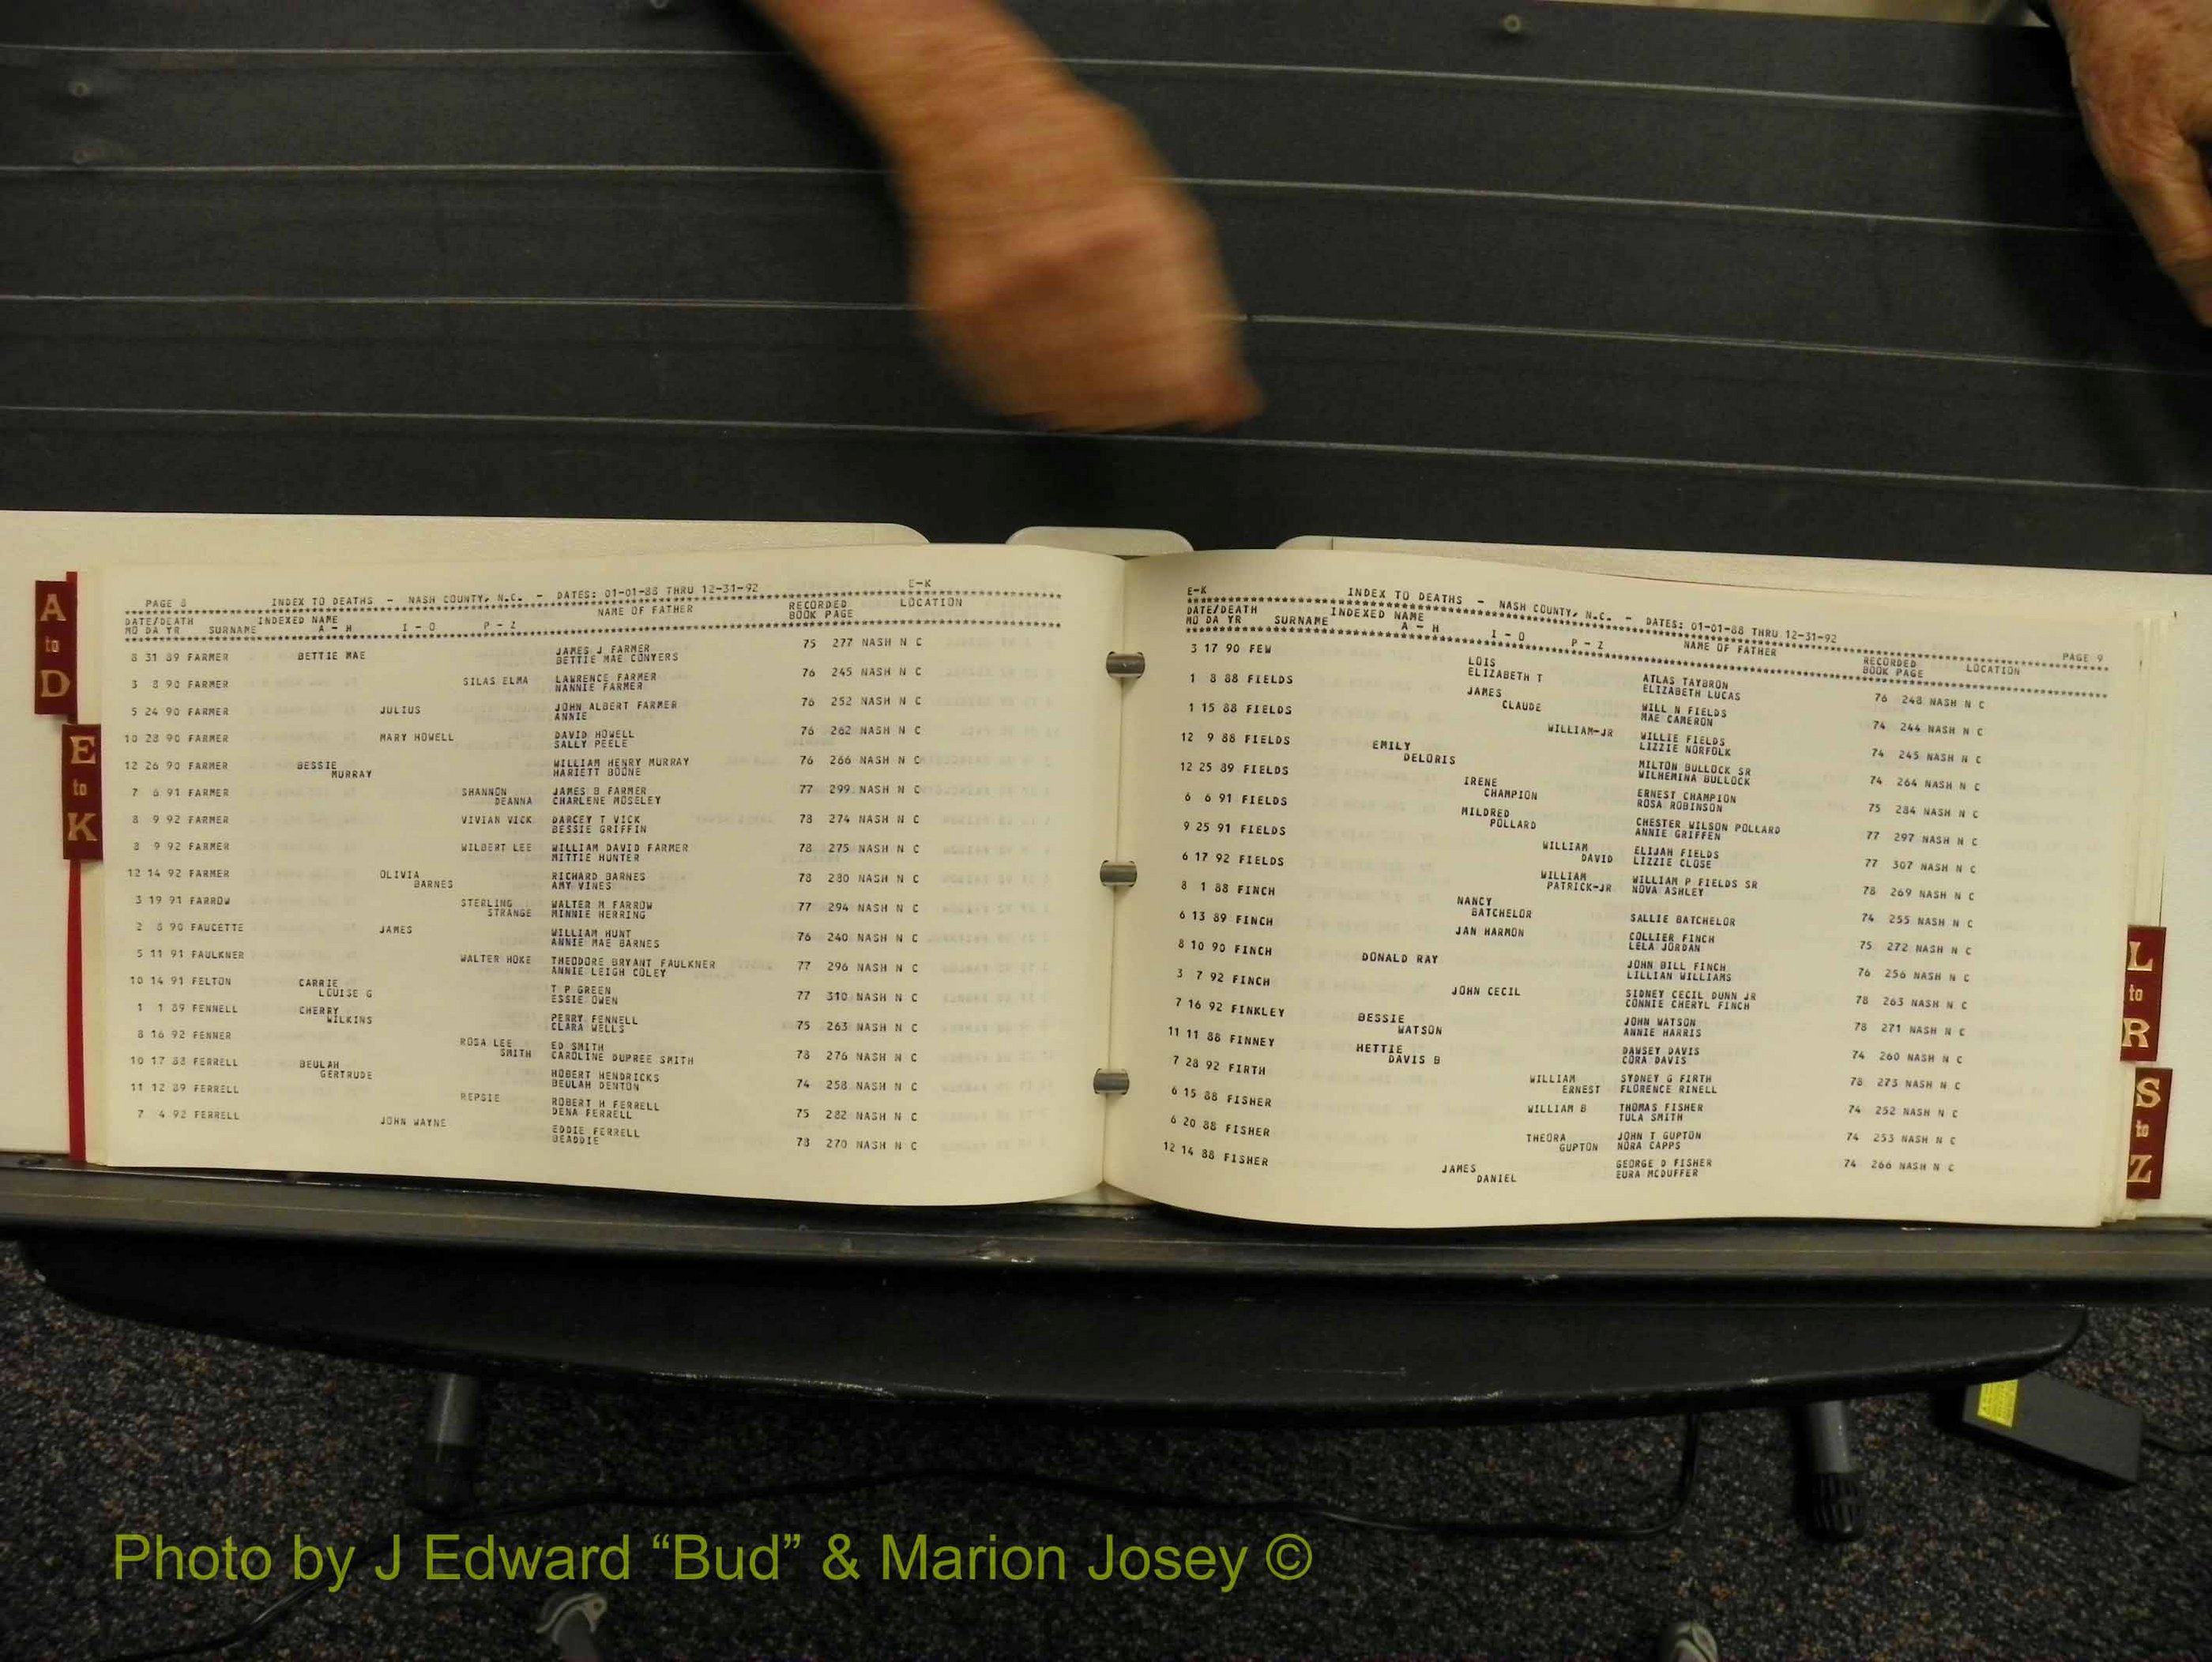 A
to
D
E
to
K
PAGE 8 INDEX TO DEATHS - NASH COUNTY, N.C. - DATES: 01-01-88 THRU 12-31-92 E-K
DATE/DEATH INDEXED NAME NAME OF FATHER RECORDED LOCATION
MO DA YR SURNAME A - H I - O P - Z BOOK PAGE
8 31 89 FARMER BETTIE MAE JAMES J FARMER 75 277 NASH N C
BETTIE MAE CONYERS
3 8 90 FARMER SILAS ELMA LAWRENCE FARMER 76 245 NASH N C
NANNIE FARMER
5 24 90 FARMER JULIUS JOHN ALBERT FARMER 76 252 NASH N C
ANNIE
10 28 90 FARMER MARY HOWELL DAVID HOWELL 76 262 NASH N C
SALLY PEELE
12 26 90 FARMER BESSIE WILLIAM HENRY MURRAY 76 266 NASH N C
MURRAY HARIETT BOONE
7 6 91 FARMER SHANNON JAMES B FARMER 77 299 NASH N C
DEANNA CHARLENE MOSELEY
8 9 92 FARMER VIVIAN VICK DARCEY T VICK 78 274 NASH N C
BESSIE GRIFFIN
8 9 92 FARMER WILBERT LEE WILLIAM DAVID FARMER 78 275 NASH N C
MITTIE HUNTER
12 14 92 FARMER OLIVIA RICHARD BARNES 78 280 NASH N C
BARNES AMY VINES
3 19 91 FARROW STERLING WALTER M FARROW 77 294 NASH N C
STRANGE MINNIE HERRING
2 8 90 FAUCETTE JAMES WILLIAM HUNT 76 240 NASH N C
ANNIE MAE BARNES
5 11 91 FAULKNER WALTER HOKE THEODORE BRYANT FAULKNER 77 296 NASH N C
ANNIE LEIGH COLEY
10 14 91 FELTON CARRIE T P GREEN 77 310 NASH N C
LOUISE G ESSIE OWEN
1 1 89 FENNELL CHERRY PERRY FENNELL 75 263 NASH N C
WILKINS CLARA WELLS
8 16 92 FENNER ROSA LEE ED SMITH 78 276 NASH N C
SMITH CAROLINE DUPREE SMITH
10 17 88 FERRELL BEULAH HUBERT HENDRICKS 74 258 NASH N C
GERTRUDE BEULAH DENTON
11 12 89 FERRELL REPSIE ROBERT H FERRELL 75 282 NASH N C
DENA FERRELL
7 4 92 FERRELL JOHN WAYNE EDDIE FERRELL 78 270 NASH N C
BEADDIE
E-K INDEX TO DEATHS - NASH COUNTY, N.C. - DATES: 01-01-88 THRU 12-31-92 PAGE 9
DATE/DEATH INDEXED NAME NAME OF FATHER RECORDED LOCATION
MO DA YR SURNAME A - H I - O P - Z BOOK PAGE
3 17 90 FEW LOIS ATLAS TAYBRON 76 248 NASH N C
ELIZABETH T ELIZABETH LUCAS
1 8 88 FIELDS JAMES WILL N FIELDS 74 244 NASH N C
CLAUDE MAE CAMERON
1 15 88 FIELDS WILLIAM-JR WILLIE FIELDS 74 245 NASH N C
LIZZIE NORFOLK
12 9 88 FIELDS EMILY MILTON BULLOCK SR 74 264 NASH N C
DELORIS WILHEMINA BULLOCK
12 25 89 FIELDS IRENE ERNEST CHAMPION 75 284 NASH N C
CHAMPION ROSA ROBINSON
6 6 91 FIELDS MILDRED CHESTER WILSON POLLARD 77 297 NASH N C
POLLARD ANNIE GRIFFEN
9 25 91 FIELDS WILLIAM ELIJAH FIELDS 77 307 NASH N C
DAVID LIZZIE CLOSE
6 17 92 FIELDS WILLIAM WILLIAM P FIELDS SR 78 269 NASH N C
PATRICK-JR NOVA ASHLEY
8 1 88 FINCH NANCY 74 255 NASH N C
BATCHELOR SALLIE BATCHELOR
6 13 89 FINCH JAN HARMON COLLIER FINCH 75 272 NASH N C
LELA JORDAN
8 10 90 FINCH DONALD RAY JOHN BILL FINCH 76 256 NASH N C
LILLIAN WILLIAMS
3 7 92 FINCH JOHN CECIL SIDNEY CECIL DUNN JR 78 263 NASH N C
CONNIE CHERYL FINCH
7 16 92 FINKLEY BESSIE JOHN WATSON 78 271 NASH N C
WATSON ANNIE HARRIS
11 11 88 FINNEY HETTIE DAWSEY DAVIS 74 260 NASH N C
DAVIS B CORA DAVIS
7 28 92 FIRTH WILLIAM SYDNEY G FIRTH 78 273 NASH N C
ERNEST FLORENCE RINELL
6 15 88 FISHER WILLIAM B THOMAS FISHER 74 252 NASH N C
TULA SMITH
6 20 88 FISHER THEORA JOHN T GUPTON 74 253 NASH N C
GUPTON NORA CAPPS
12 14 88 FISHER JAMES GEORGE D FISHER 74 266 NASH N C
DANIEL EURA MCDUFFER
L
to
R
S
to
Z
Photo by J Edward “Bud” & Marion Josey ©